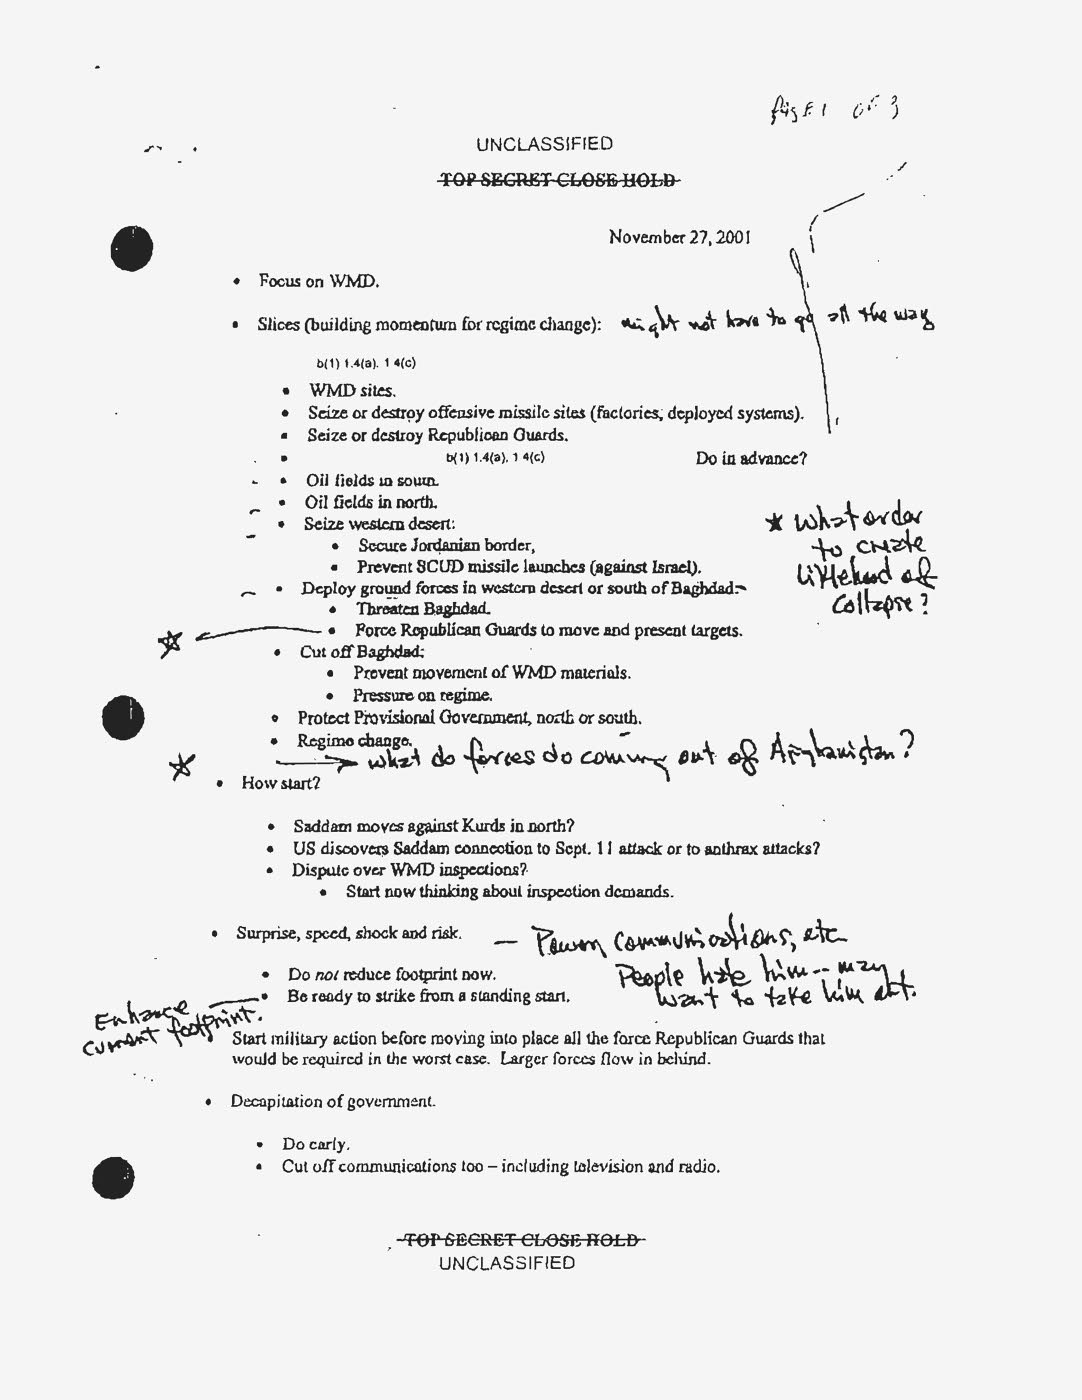 Page 1 of 3
UNCLASSIFIED
TOP SECRET CLOSE HOLD
November 27, 2001
• Focus on WMD.
• Slices (building momentum for regime change): might not have to go all the way
b(1) 1.4(a). 1 4(c)
• WMD sites.
• Seize or destroy offensive missile sites (factories, deployed systems).
• Seize or destroy Republican Guards.
• b(1) 1.4(a). 1 4(c) Do in advance?
• Oil fields in south.
• Oil fields in north.
• Seize western desert:
• Secure Jordanian border,
• Prevent SCUD missile launches (against Israel).
★ What order
to create
liklehood of
collapse?
• Deploy ground forces in western desert or south of Baghdad:
• Threaten Baghdad.
• Force Republican Guards to move and present targets.
• Cut off Baghdad:
• Prevent movement of WMD materials.
• Pressure on regime.
• Protect Provisional Government, north or south.
• Regime change.
What do forces do coming out of Afghanistan?
• How start?
• Saddam moves against Kurds in north?
• US discovers Saddam connection to Sept. 11 attack or to anthrax attacks?
• Dispute over WMD inspections?
• Start now thinking about inspection demands.
• Surprise, speed, shock and risk. — Power, communications, etc
People hate him -- may
want to take him out.
• Do not reduce footprint now.
• Be ready to strike from a standing start.
Enhance
current footprint.
Start military action before moving into place all the force Republican Guards that
would be required in the worst case. Larger forces flow in behind.
• Decapitation of government.
• Do early.
• Cut off communications too – including television and radio.
TOP SECRET CLOSE HOLD
UNCLASSIFIED